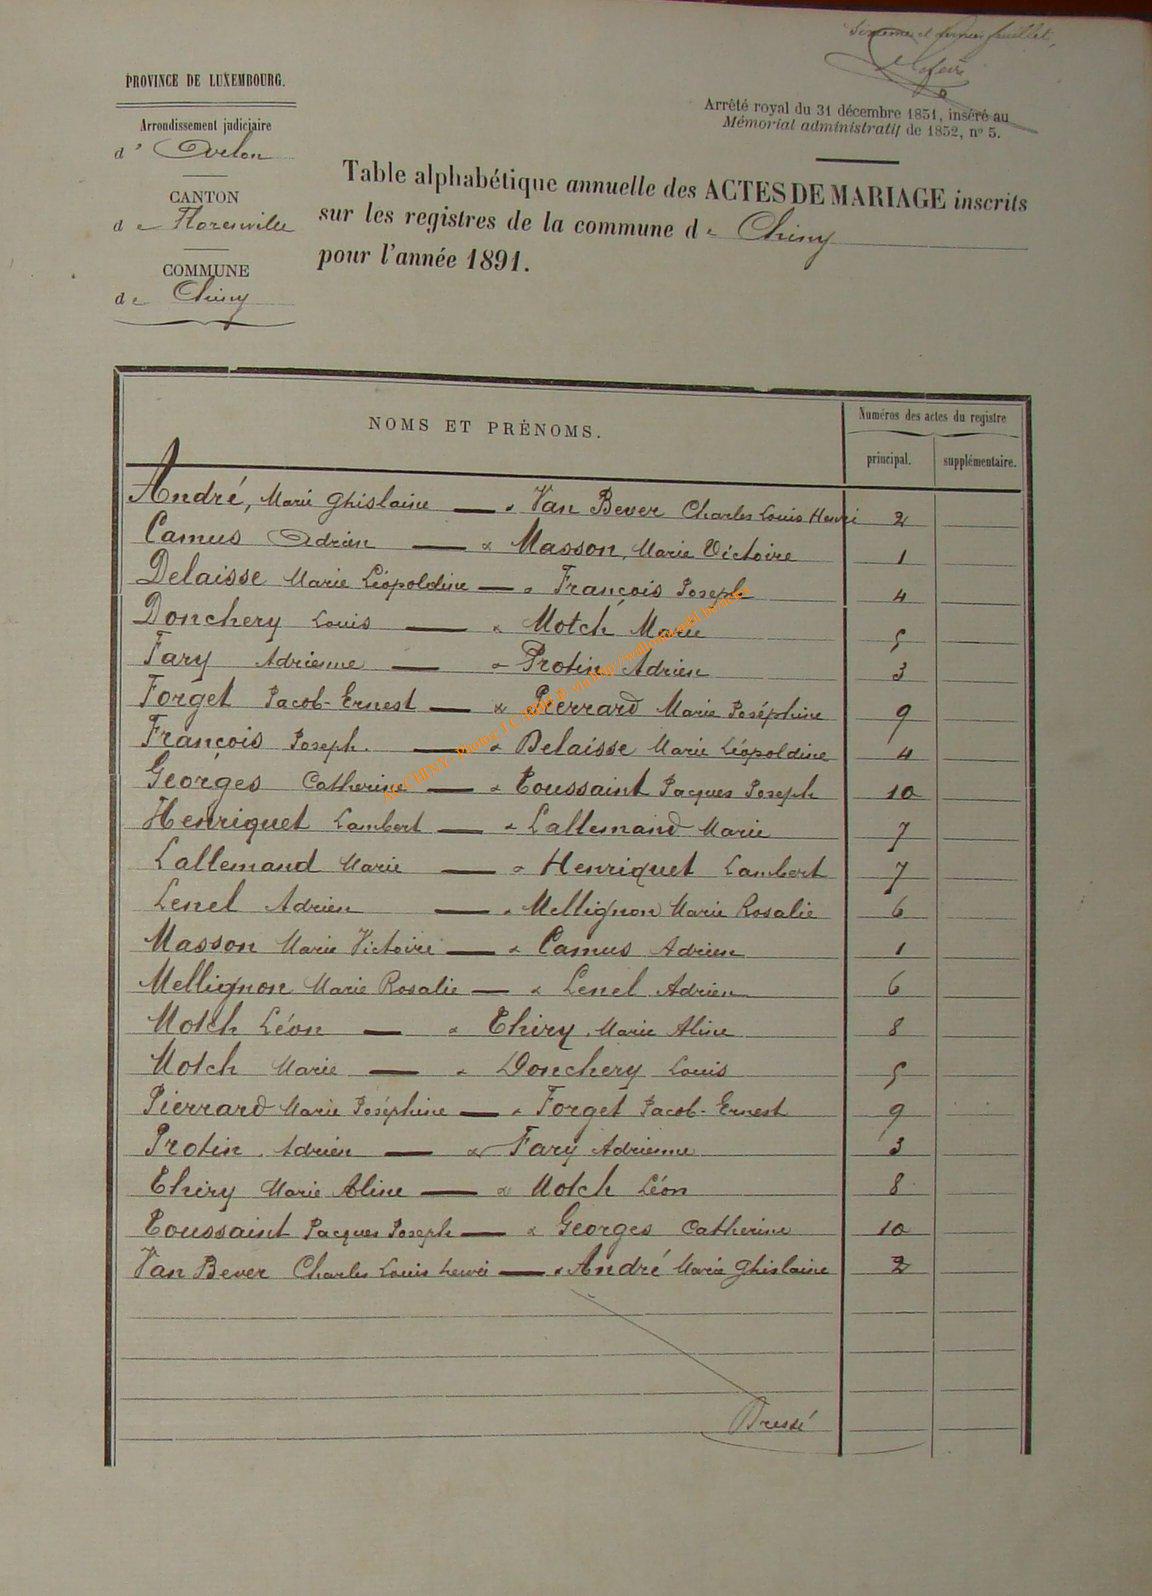 Sixième et dernier feuillet,
PROVINCE DE LUXEMBOURG.
Arrondissement judiciaire
d' Arlon
CANTON
de Florenville
COMMUNE
de Chiny
Arrêté royal du 31 décembre 1851, inséré au
Mémorial administratif de 1852, n° 5.
Table alphabétique annuelle des ACTES DE MARIAGE inscrits
sur les registres de la commune de Chiny
pour l'année 1891.
NOMS ET PRÉNOMS.
Numéros des actes du registre
principal. supplémentaire.
André, Marie Ghislaine — & Van Bever Charles Louis Henri 2
Camus Adrien — & Masson, Marie Victoire 1
Delaisse Marie Léopoldine — & François Joseph 4
Donchery Louis — & Motch Marie 5
Fary Adrienne — & Protin Adrien 3
Forget Jacob-Ernest — & Pierrard Marie Joséphine 9
François Joseph. — & Delaisse Marie Léopoldine 4
Georges Catherine — & Toussaint Jacques Joseph 10
Henriquet Lambert — & Lallemand Marie 7
Lallemand Marie — & Henriquet Lambert 7
Lenel Adrien — & Mellignon Marie Rosalie 6
Masson Marie Victoire — & Camus Adrien 1
Mellignon Marie Rosalie — & Lenel Adrien 6
Motch Léon — & Thiry Marie Aline 8
Motch Marie — & Donchery Louis 5
Pierrard Marie Joséphine — & Forget Jacob-Ernest 9
Protin Adrien — & Fary Adrienne 3
Thiry Marie Aline — & Motch Léon 8
Toussaint Jacques Joseph — & Georges Catherine 10
Van Bever Charles Louis henri — & André Marie Ghislaine 2
Dressé